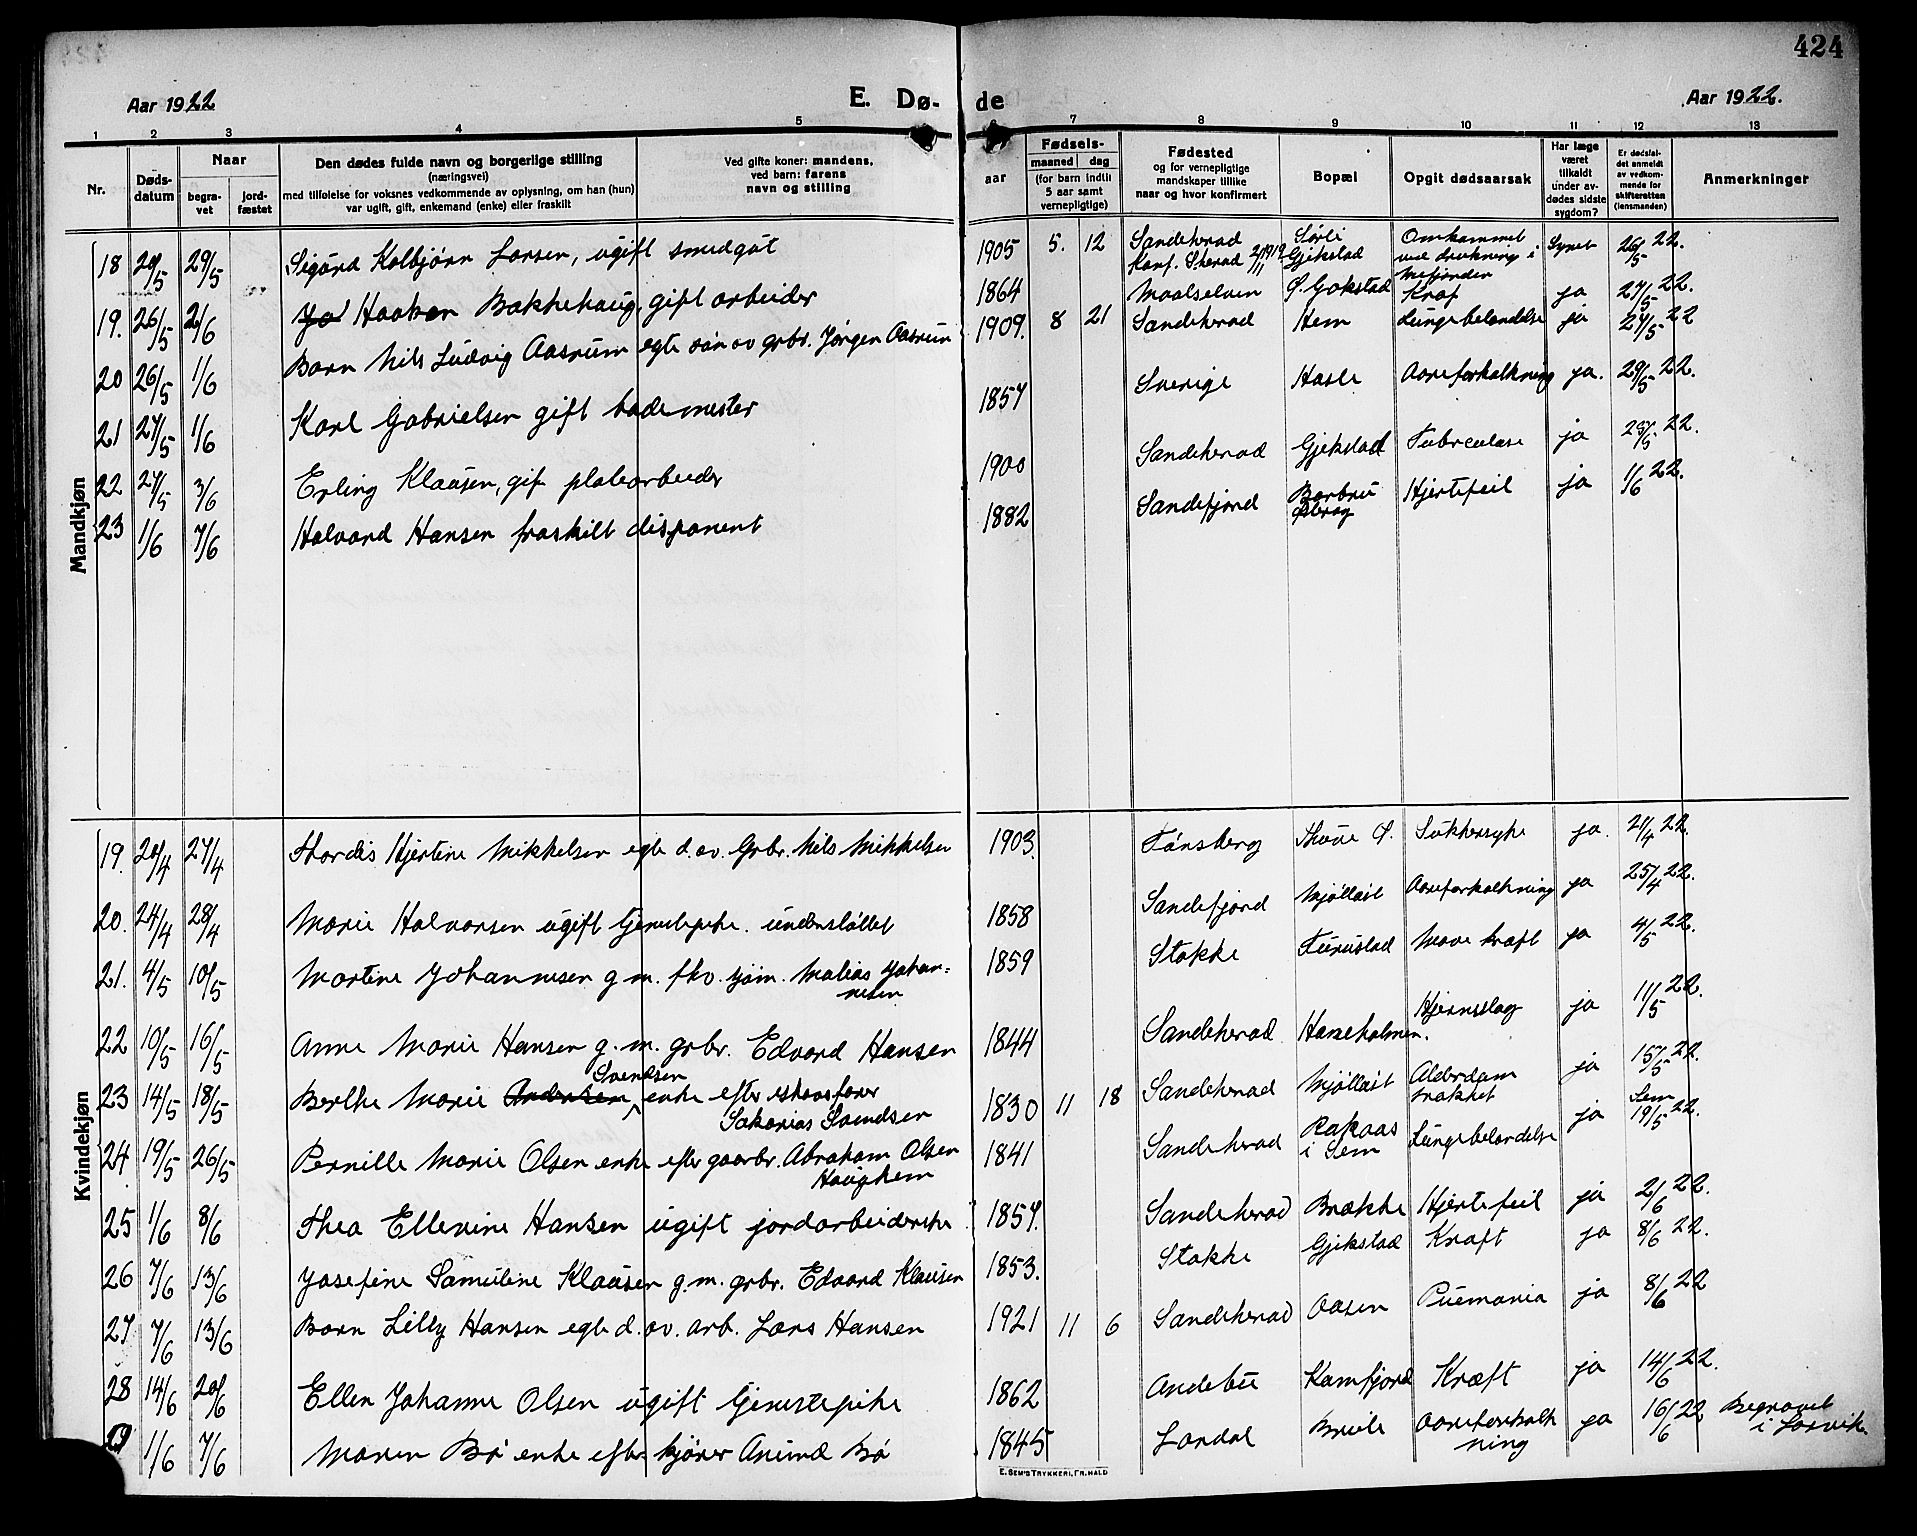 424
Aar 1922
E. Dø-
de
Aar 1922.
1 2 3 4 5 7 8 9 10 11 12 13
Nr.
Døds-
datum
Naar
begra-
vet
jord-
fæstet
Den dødes fulde navn og borgerlige stilling
(næringsvei)
med tilføielse for voksnes vedkommende av oplysning, om han (hun)
var ugift, gift, enkemand (enke) eller fraskilt
Ved gifte koner: mandens,
ved barn: farens
navn og stilling
aar
Fødsels-
maaned dag
(for barn indtil
5 aar samt
vernepligtige)
Fødested
og for vernepligtige
mandskaper tillike
naar og hvor konfirmert
Bopæl
Opgit dødsaarsak
Har læge
været
tilkaldt
under av-
dødes sidste
sygdom?
Er dødsfal-
det anmeldt
av vedkom-
mende for
skifteretten
(lensmanden)
Anmerkninger
Mandkjøn
18 20/5 29/5 Sigurd Kolbjørn Larsen, ugift smedgut 1905 5. 12 Sandeherad Sørli Omkommet Synet 26/5 22.
Konf. S.herad 2/11 1919 Gjekstad ved drukning i
Mefjorden
19. 26/5 2/6 Haaken Bakkehaug, gift arbeider 1864 Maalselven Ø. Gokstad Kræf ja 27/5 22.
20 26/5 1/6 Barn Nils Ludvig Aasrum egte søn av grbr. Jørgen Aasrum 1909. 8 21 Sandeherad Hem Lungebetendelse ja 27/5 22
21 27/5 1/6 Karl Gabrielsen gift bademester 1857 Sverige Hasle Aareforkalkning ja. 29/5 22.
22 27/5 3/6 Erling Klausen, gif platearbeider 1900 Sandeherad Gjekstad Tubreulose ja 29/5 22.
23 1/6 7/6 Halvard Hansen fraskilt disponent 1882 Sandefjord Barbru Hjertefeil ja 1/6 22.
Kvindekjøn
19. 20/4 27/4 Thordis Hjertine Mikkelsen egte d. av. Grbr. Nils Mikkelsen 1903. Tønsberg Skaue Ø. Sukkersyke ja. 21/4 22.
20. 24/4 28/4 Marie Halvorsen ugift tjenestepike. understøttet 1858 Sandefjord Mjøllait Aareforkalkning ja 25/4 22.
21. 4/5 10/5 Martine Johannesen g m. fhv. sjøm. Matias Johan=
nesen 1859 Stokke Furustad Mave kraft ja 4/5 22.
22 10/5 16/5 Anne Marie Hansen g. m. grbr. Edvard Hansen 1844 Sandeherad Hasseholmen. Hjerneslag ja 11/5 22.
Svendsen
23 14/5 18/5 Berthe Marie Andersen enke efter
Sakarias Svendsen 1830 11 18 Sandeherad Mjøllait Alderdom ja 15/5 22.
24 19/5 26/5 Pernille Marie Olsen enke efter gaarbr. Abraham Olsen
Haughem 1841 Sandeherad Rakaas
i Sem Lungebetendelse ja Sem
19/5 22.
25 1/6 8/6 Thea Ellevine Hansen ugift jordarbeiderske 1857. Sandeherad Brække Hjertefeil ja 2/6 22.
26 7/6 13/6 Josefine Samuline Klausen g. m. grbr. Edvard Klausen 1853. Stokke Gjekstad Kraft ja 8/6 22.
27. 7/6 13/6 Barn Lilly Hansen egte d. av. arb. Lars Hansen 1921 11 6 Sandeherad Aasen Puemonia ja 8/6 22
28 14/6 20/6 Ellen Johanne Olsen ugift tjenestepike 1862 Andebu Kamfjord Kræft ja 14/6 22.
1/6 7/6 Maren Bø enke efter kjører Anund Bø 1845 Lardal Aareforkalk
ning ja 16/6 22 Begravet
i Larvik.
E. SEM'S TRYKKERI, FR.HALD